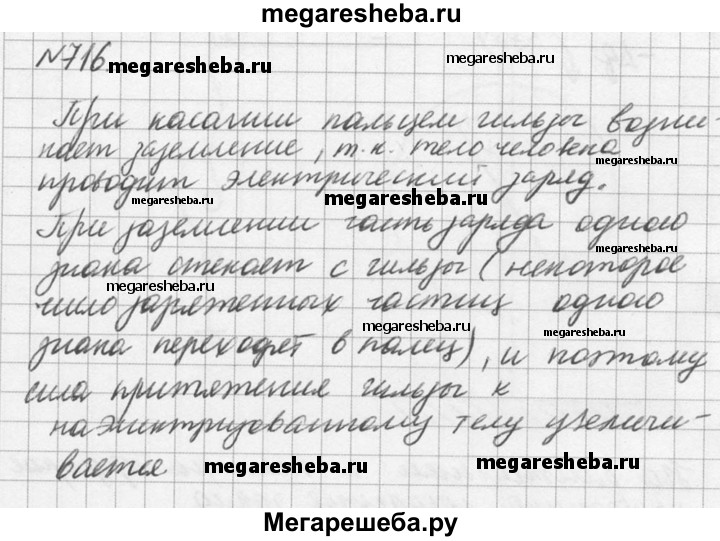 megaresheba.ru
№716 megaresheba.ru
При касании пальцем гильзы возни-
megaresheba.ru
кает заземление, т.к. тело человека
megaresheba.ru
проводит электрический заряд.
megaresheba.ru
megaresheba.ru
При заземлении часть заряда одного
megaresheba.ru
знака стекает с гильзы (некоторое
megaresheba.ru
число заряженных частиц одного
megaresheba.ru
megaresheba.ru
знака переходят в палец), и поэтому
сила притяжения гильзы к
наэлектризованному телу увеличи-
вается megaresheba.ru megaresheba.ru
Мегарешеба.ру